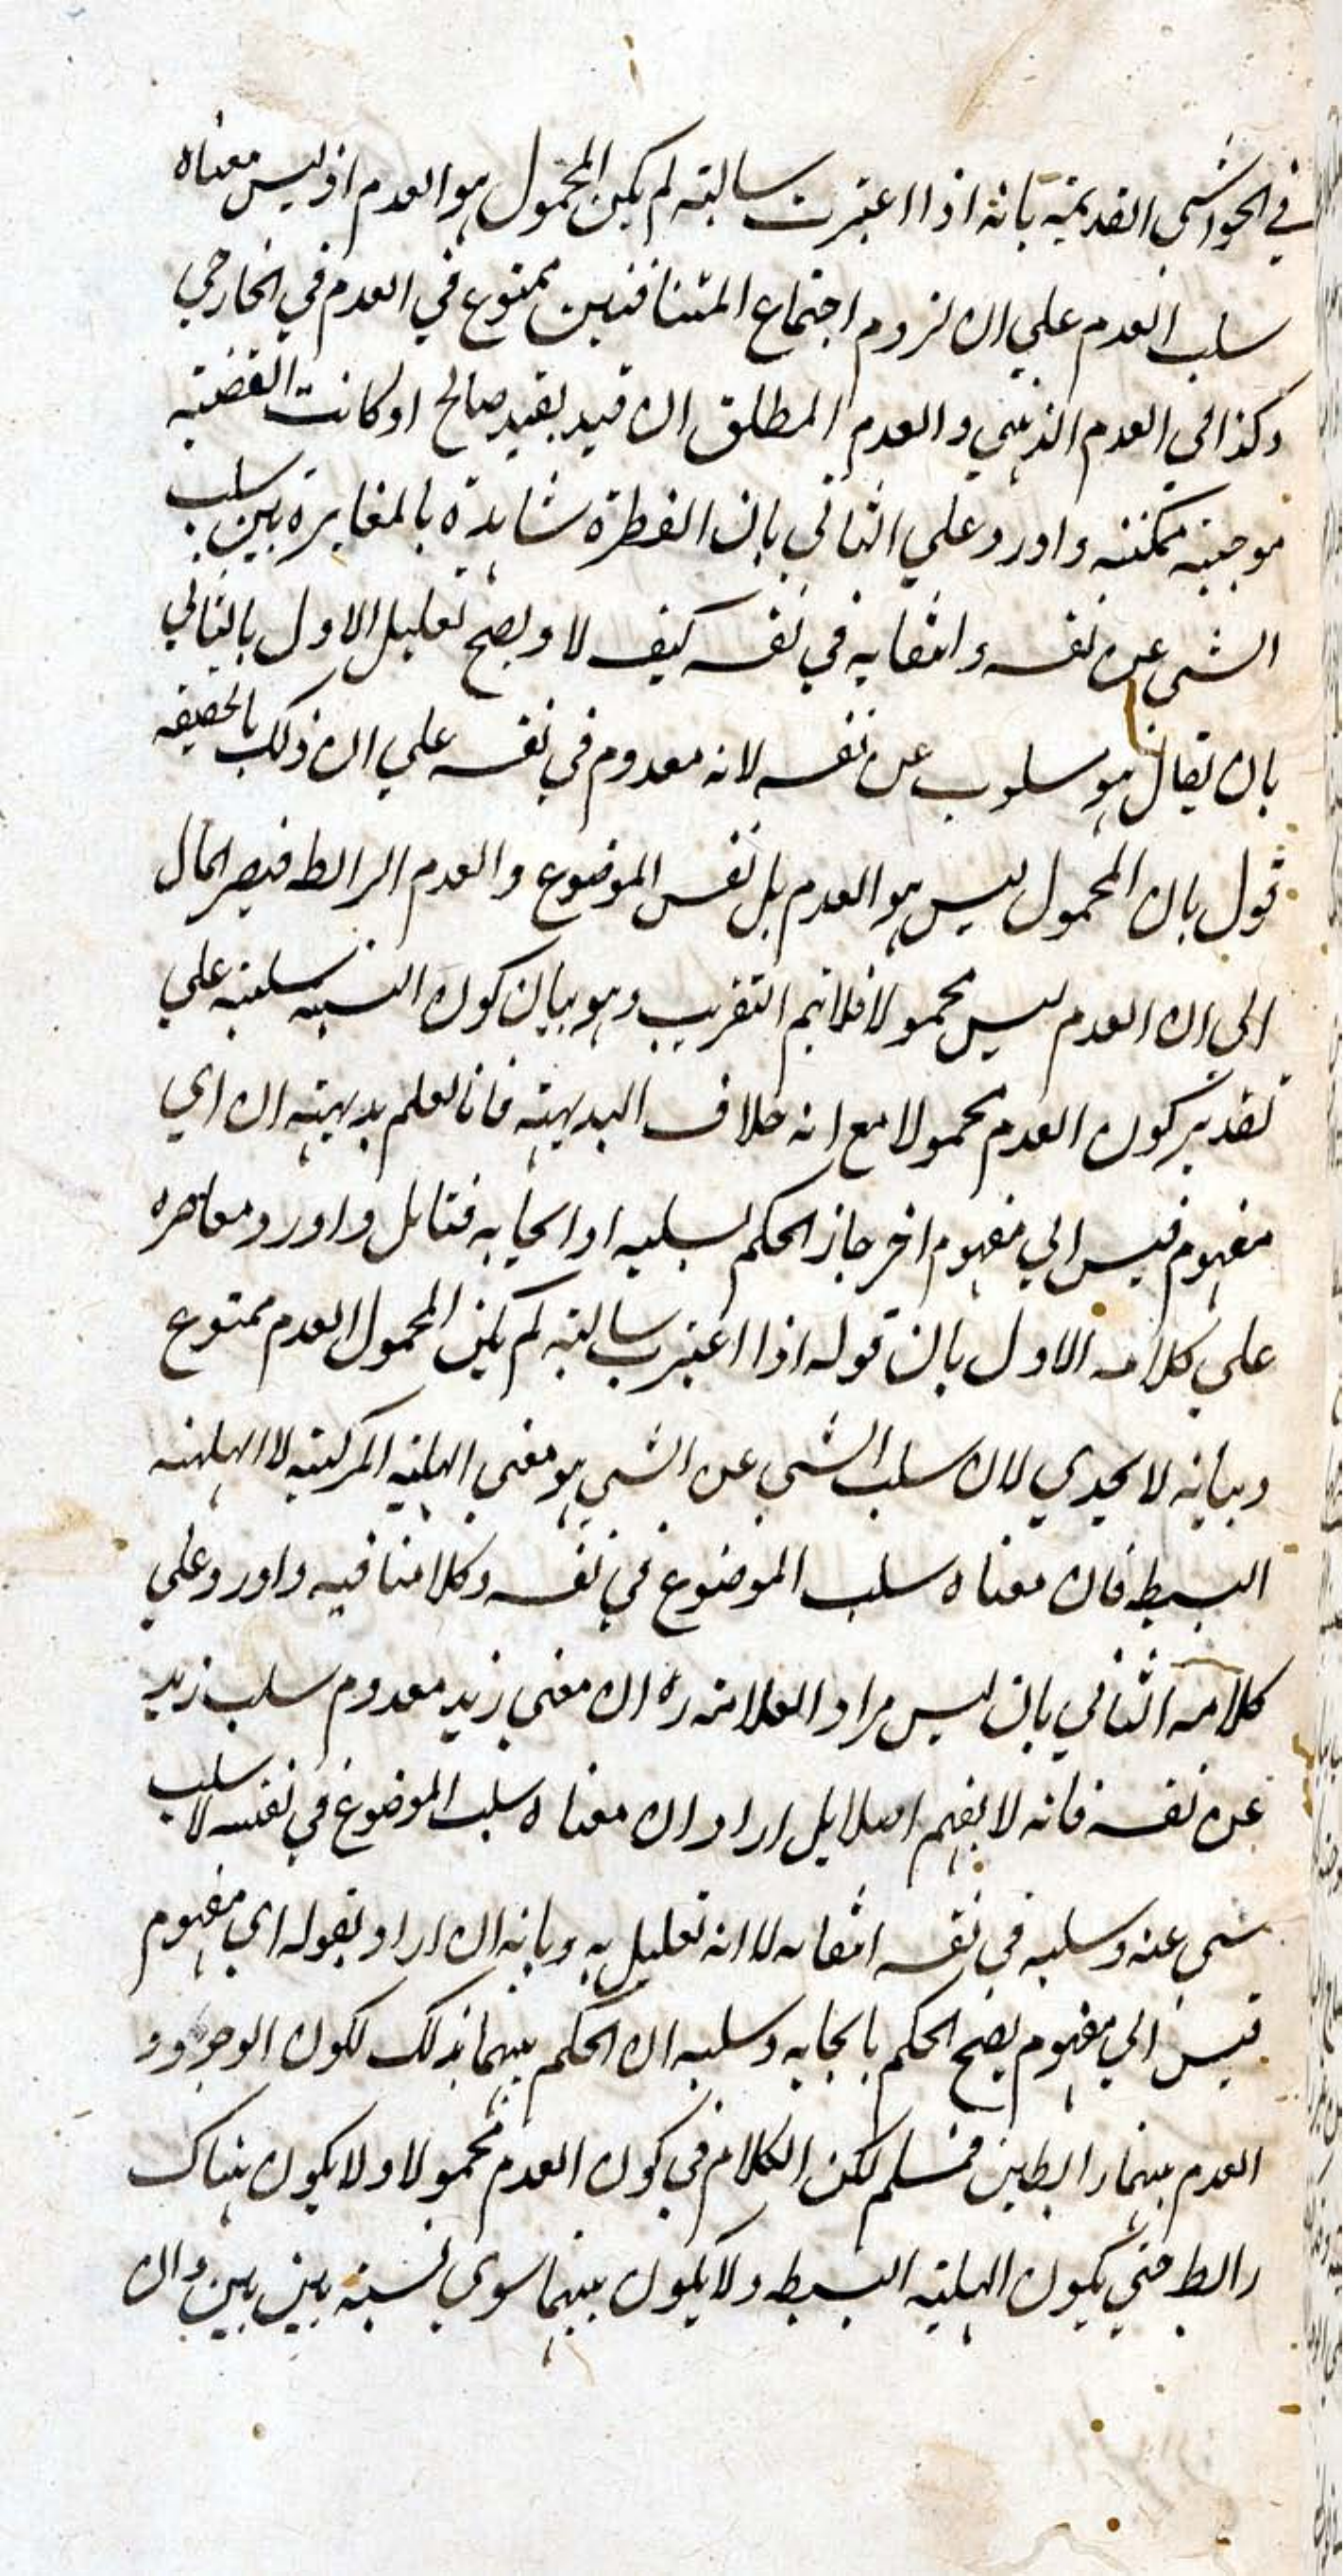 في الحواشي القديمة بانه اذا اعتبرت سالبته لم يكن المحمول هو العدم اذ ليس معناه
سلب العدم علي ان لزوم اجتماع المتنافيين ممنوع في العدم في الخارجي
وكذا في العدم الذهني والعدم المطلق ان قيد بقيد صالح او كانت القضية
موجبته ممكنته واورد علي الثاني بان الفطرة شاهدة بالمغايرة بين سلب
الشي عن نفسه وانتفايه في نفسه كيف لا ويصح تعليل الاول بالثاني
بان يقال هو مسلوب عن نفسه لانه معدوم في نفسه علي ان ذلك بالحقيقه
قول بان المحمول ليس هو العدم بل نفس الموضوع والعدم الرابطه فيصر المال
الي ان العدم ليس محمولا فلا يتم التقريب وهو بيان كون النسبه سلبته علي
تقدير كون العدم محمولا مع انه خلاف البديهته فانا نعلم بديهته ان اي
مفهوم قيس الي مفهوم اخر جاز الحكم بسلبه او ايجابه فتامل واورد معاصره
علي كلامه الاول بان قوله اذا اعتبر سالبته لم يكن المحمول العدم ممنوع
وبيانه لا يجدي لان سلب الشي عن الشي هو معني الهليته المركبته لا الهليته
البسيطه فان معناه سلب الموضوع في نفسه وكلامنا فيه واورد علي
كلامه الثاني بان ليس مراد العلامة ره ان معني زيد معدوم سلب زيد
عن نفسه فانه لا يفهم اصلا بل اراد ان معناه سلب الموضوع في نفسه لا سلب
شي عنه وسلبه في نفسه انتفائه لا انه تعليل به وبانه ان اراد بقوله اي مفهوم
قيس الي مفهوم يصح الحكم بايجابه وسلبه ان الحكم بينهما بذلك لكون الوجود و
العدم بينهما رابطين فمسلم لكن الكلام في كون العدم محمولا ولا يكون هناك
رابط حتي يكون الهليته البسيطه ولا يكون بينهما سوي نسبته بين بين و ان